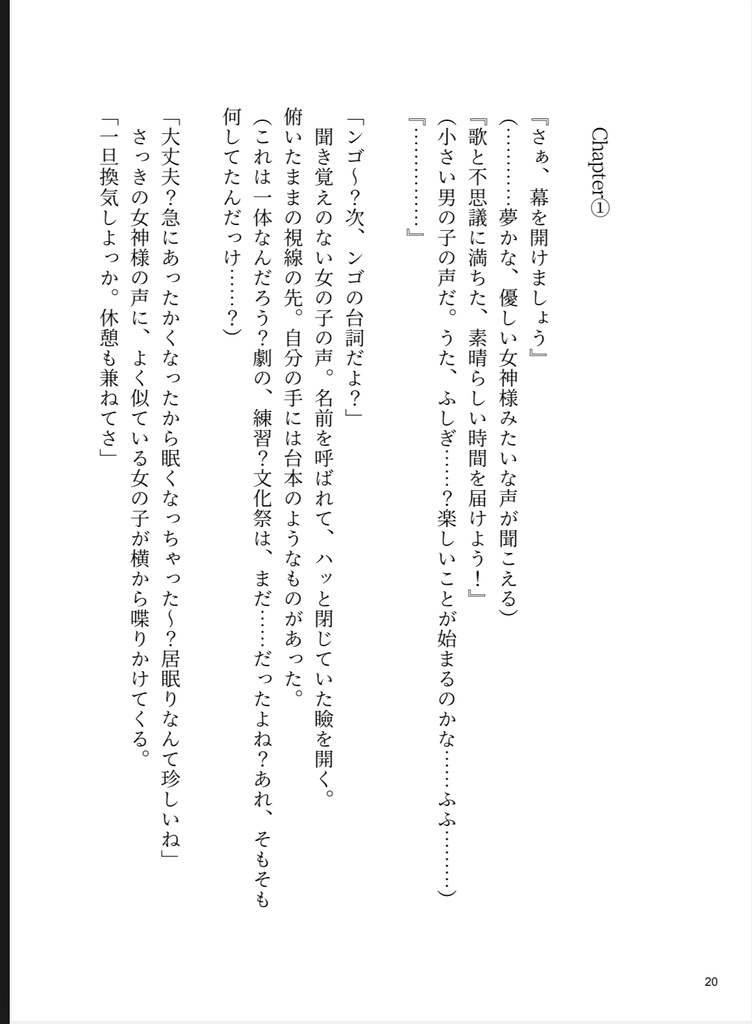 Chapter①
『さぁ、幕を開けましょう』
(…………夢かな、優しい女神様みたいな声が聞こえる)
『歌と不思議に満ちた、素晴らしい時間を届けよう！』
(小さい男の子の声だ。うた、ふしぎ……？楽しいことが始まるのかな……ふふ………)
『……………』
「ンゴ～？次、ンゴの台詞だよ？」
聞き覚えのない女の子の声。名前を呼ばれて、ハッと閉じていた瞼を開く。
俯いたままの視線の先。自分の手には台本のようなものがあった。
(これは一体なんだろう？劇の、練習？文化祭は、まだ……だったよね？あれ、そもそも
何しててんだっけ……？)
「大丈夫？急にあったかくなったから眠くなっちゃった～？居眠りなんて珍しいね」
さっきの女神様の声に、よく似ている女の子が横から喋りかけてくる。
「一旦換気しよっか。休憩も兼ねてさ」
20